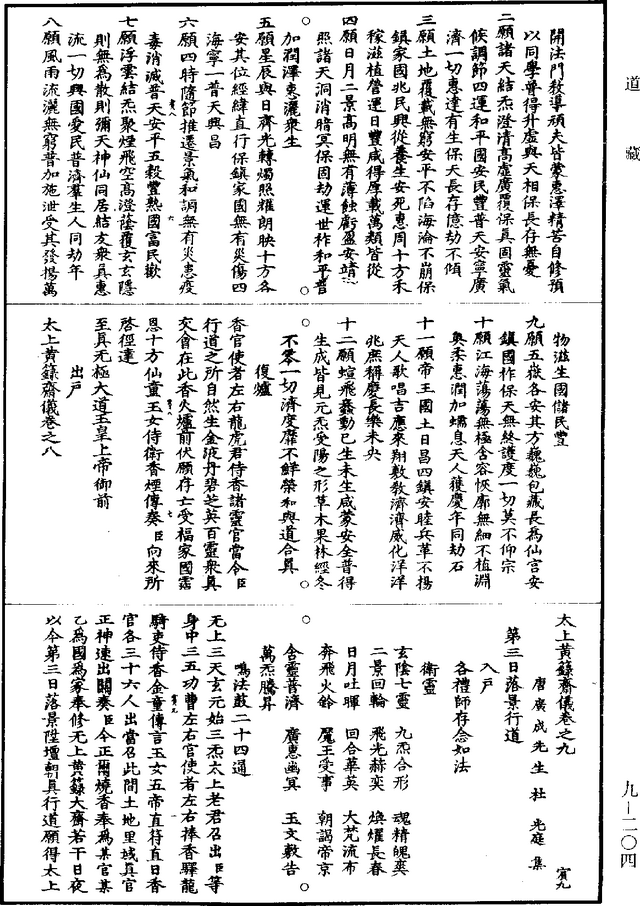 道藏
開法門教導頑夫皆蒙惠澤精苦自修預
以同學尊得升虛與天相保長存無憂
二願諸天結炁澄清高虛廣覆保真固靈氣
候調節四運和平國安民豐普天安寧廣
濟一切惠達有生保天長存億劫不傾
三願土地覆載無窮安平不陷海淪不崩保
鎮家國兆民興從養生安死惠周十方禾
稼滋植營運日豐咸得厚載萬類皆從
四願日月二景高明無有薄蝕虧盈安靖
照諸天洞消暗冥保固劫運世祚和平普
加潤澤惠灑衆生
五願星辰與日齊光轉燭照耀朗映十方各
安其位經緯直行保鎮家國無有災傷四
海寧一普天興昌
六願四時隨節推遷景氣和調無有災患疫
毒消滅普天安平五穀豐熟國富民歡
七願浮雲結炁聚煙飛空高澄蔭覆玄玄隱
則無為散則彌天神仙同居結友衆真惠
流一切興國愛民普濟羣生人同劫年
八願風雨流灑無窮普加施泄受其發揚萬
物滋生國儲民豐
九願五嶽各安其方巍巍包藏長為仙宮安
鎮國祚保天無終護度一切莫不仰宗
十願江海蕩蕩無極含容恢廓無細不植淵
奧柔惠潤加蠕息天人獲慶年同劫石
十一願帝王國土日昌四鎮安睦兵革不揚
天人歌唱吉應來翔敷教濟濟威化洋洋
兆庶稱慶長樂未央
十二願蝖飛蠢動已生未生咸蒙安全普得
生成皆見元炁受陽之形草木果林經冬
不零一切濟度靡不鮮榮和與道合真
復爐
香官使者左右龍虎君侍香諸靈官當令臣
行道之所自然生金液丹碧芝英百靈衆真
交會在此香火爐前伏願存亡受福家國霑
恩十方仙童玉女侍衛香煙傳奏臣向來所
啓徑達
至真无極大道玉皇上帝御前
出戶
太上黃籙齋儀卷之八
太上黃籙齋儀卷之九
唐廣成先生杜光庭集
第三日落景行道
入戶
各禮師存念如法
衛靈
玄陰七靈　九炁合形　魂精魄爽
二景回輪　飛光赫奕　煥耀長春
日月吐暉　回合華英　大梵流布
奔飛火鈴　魔王受事　朝謁帝京
含靈普濟　廣惠幽冥　玉文敷告
萬炁騰昇
鳴法鼓二十四通
无上三天玄元始三炁太上老君召出臣等
身中三五功曹左右官使者左右捧香驛龍
騎吏侍香金童傳言玉女五帝直符直日香
官各三十六人出當召此間土地里域真官
正神速出關奏臣今正爾燒香奉為某官某
乙為國為家奉修无上黃籙大齋若干日夜
以今第三日落景陞壇朝真行道願得太上
九－二〇四